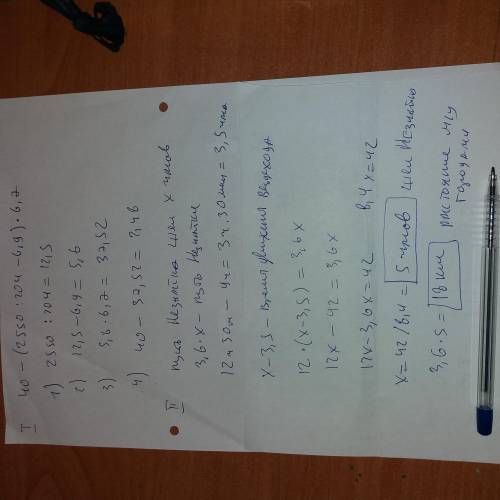 I 40 - (2550 : 204 - 6,9) · 6,7
1) 2550 : 204 = 12,5
2) 12,5 - 6,9 = 5,6
3) 5,6 · 6,7 = 37,52
4) 40 - 37,52 = 2,48
II Пусть Незнайка шел x часов
3,6 · x - путь Незнайки
12ч 30м - 9ч = 3ч. 30мин = 3,5часа
x - 3,5 - время движения вездехода
12 · (x - 3,5) = 3,6x
12x - 42 = 3,6x
12x - 3,6x = 42 8,4x = 42
x = 42 / 8,4 = 5 часов шел Незнайка
3,6 · 5 = 18 км расстояние м/у
городами